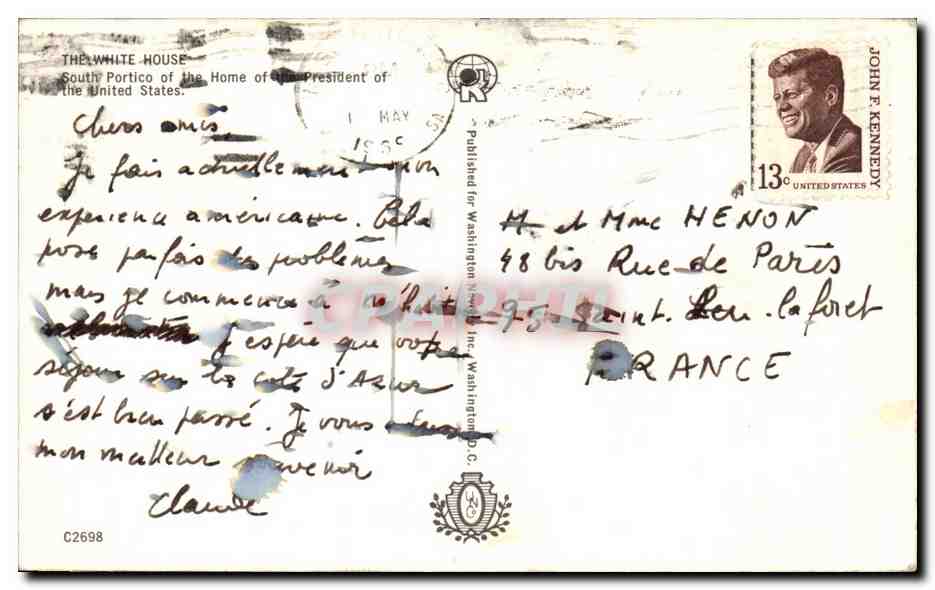 THE WHITE HOUSE
South Portico of the Home of the President of
the United States.
Chers amis,
Je fais actuellement mon
expérience américaine. Cela
pose parfois des problèmes
mais je commence à m'habituer
J'espère que votre
séjour sur la côte d'Azur
s'est bien passé. Je vous
mon meilleur souvenir
Claude
C2698
Published for Washington News Inc., Washington, D.C.
1 MAY
JOHN F. KENNEDY
13c
UNITED STATES
M. et Mme HENON
48 bis Rue de Paris
95 - Saint. Leu. la foret
FRANCE
CPAPHIL
UNC